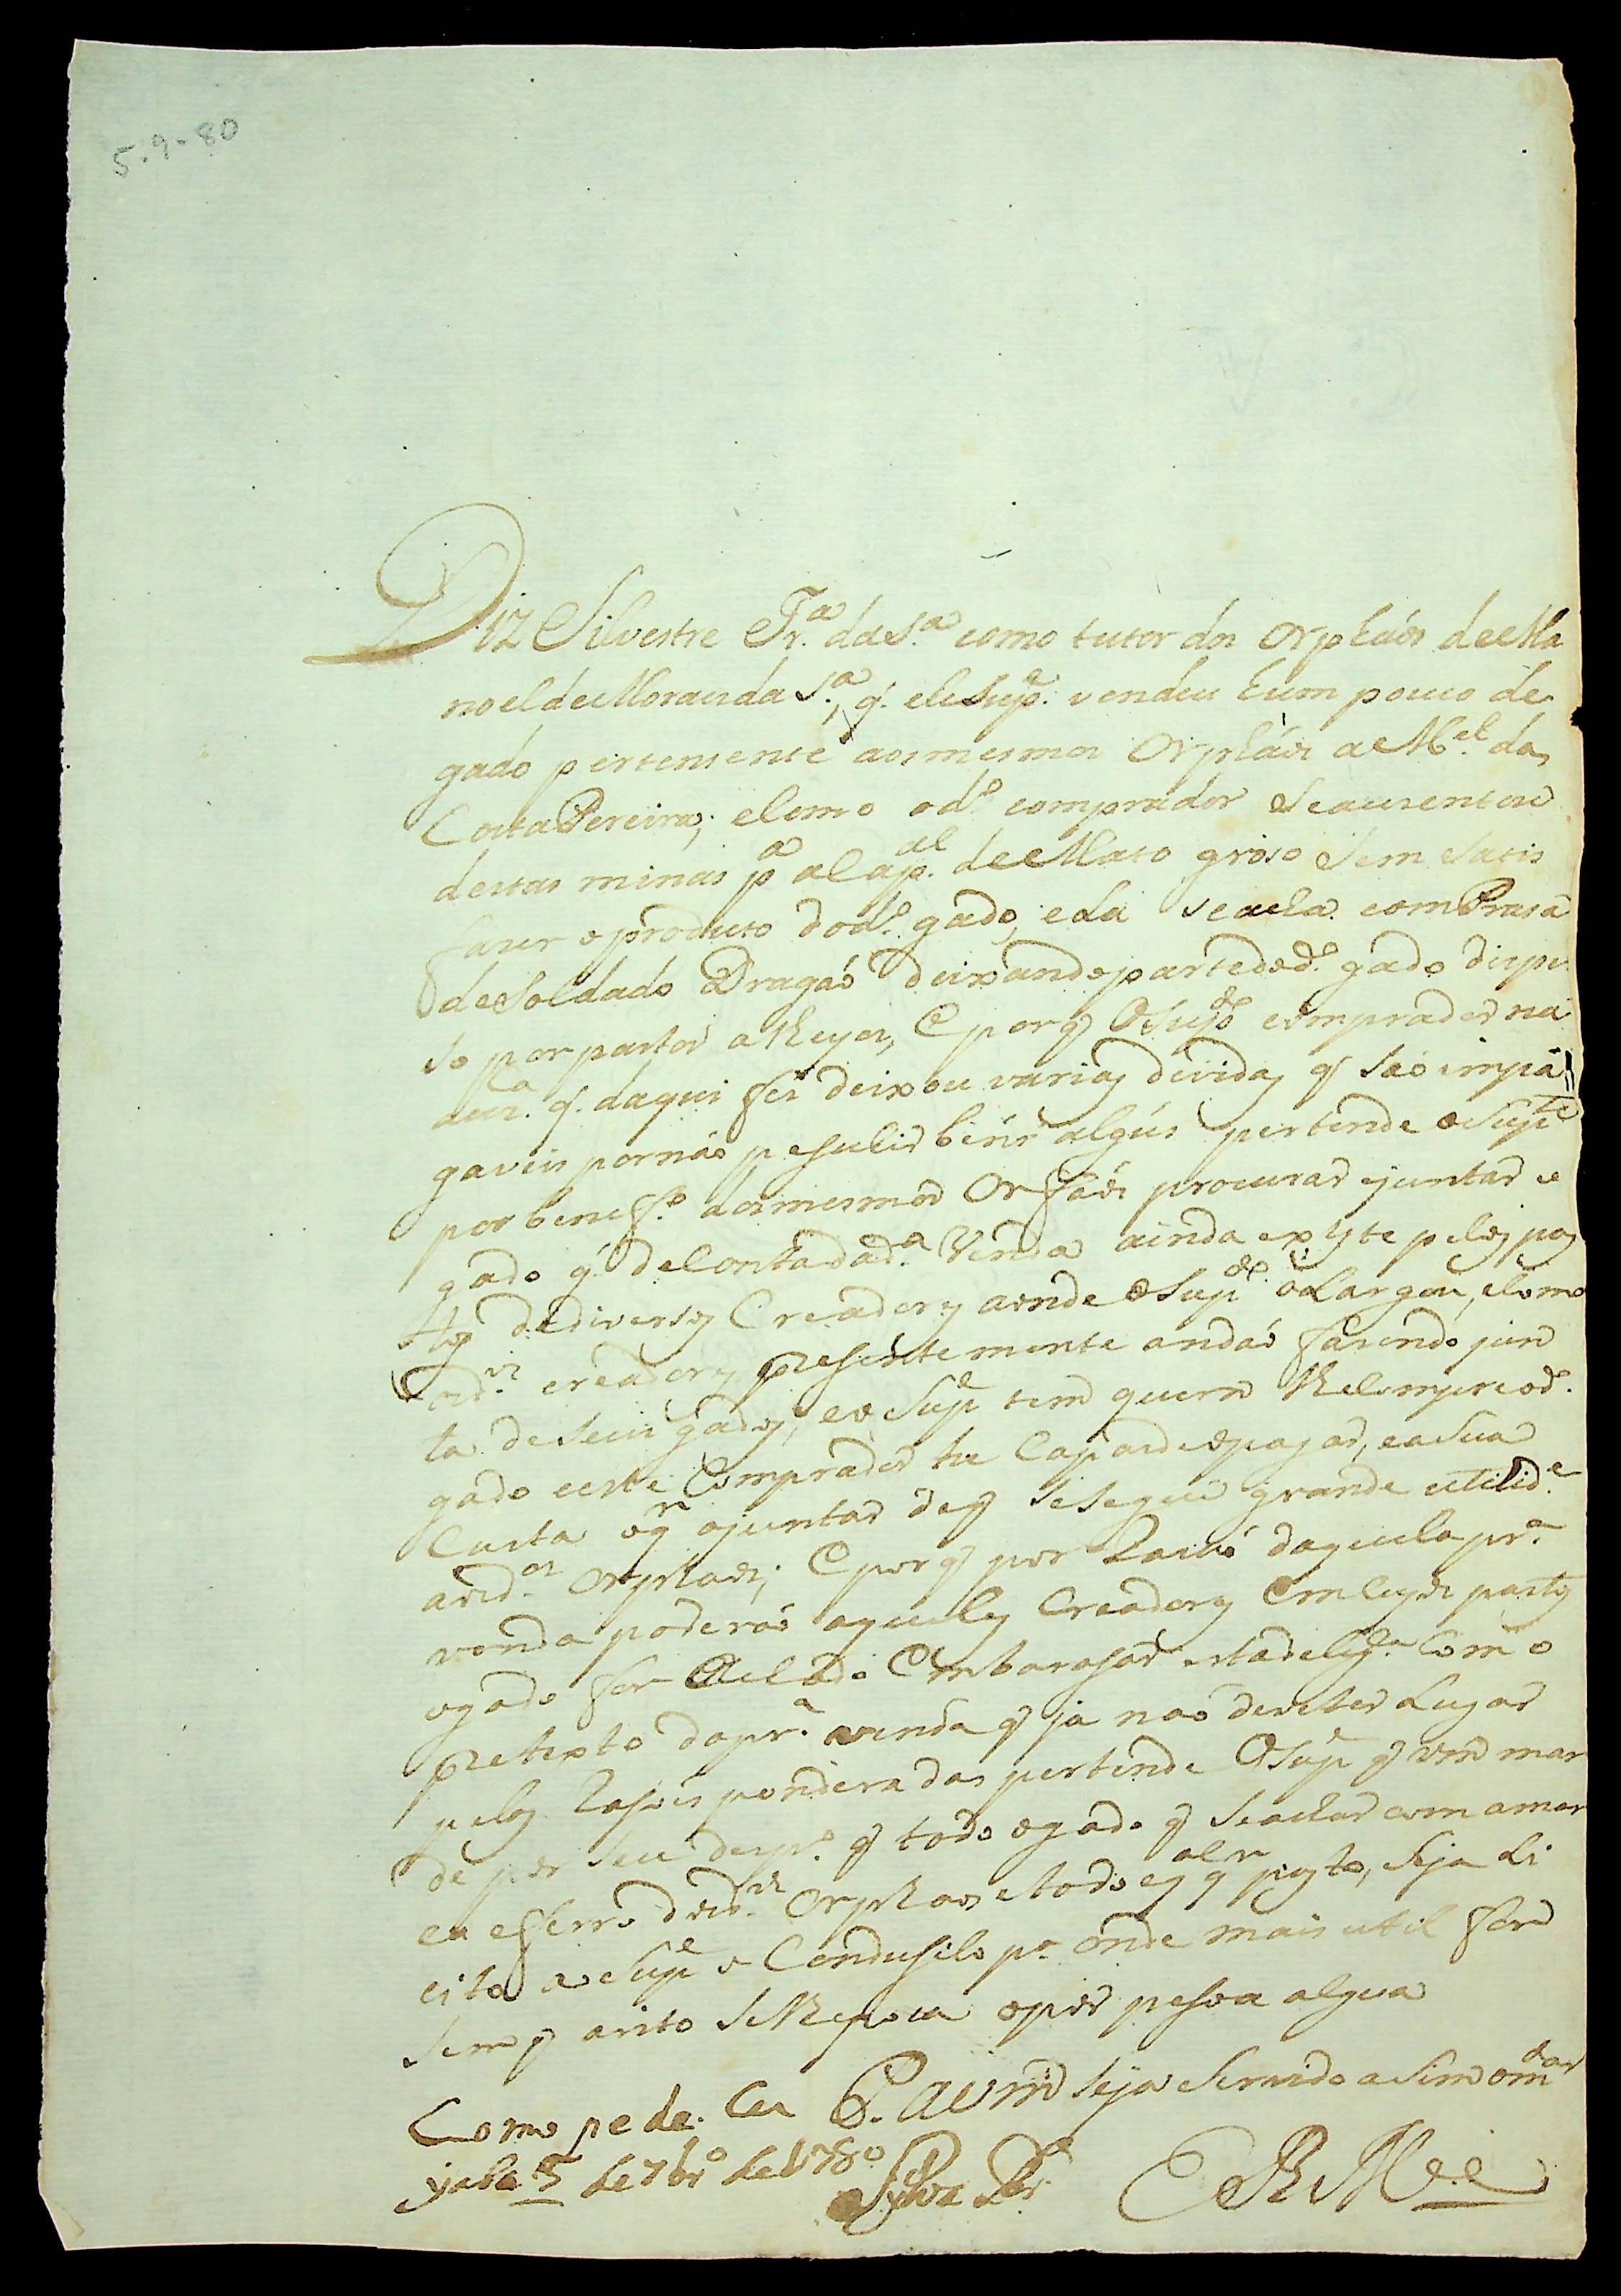 5-9-80
Diz Silvestre Fr.ª da S.ª como tutor dos Orphaós de Ma
noel de Moranda S.ª, q. ele Sup.e vendeu hum pouco de
gado pertensente aos mesmos Orphaós a M.el da
Costa Pereira; e Como o d.º comprador se ausentou
destas minas p.ª a Cap.al de Mato groso sem satis
faser o produto do d.º gado, e La se acha com Prasa
de Soldado Dragaó deixando parte do d.º gado disper
so por pastos alheyos, E porq O Sup.do comprador na
auz.ª q. daqui fes deixou varias dividas q saó impa
gaveis por naó pesuhir béns algús pertende o Sup.te
por benef.º dos mesmos Orfaós procurar ejuntar o
gado q de Conta da d.ª Venda ainda exziste pelos pas
tos de diversos Creadores aonde o Sup.do o Largou, e Como
os d.os creadores presentemente andaó fasendo jun
ta de seus gados, e o Sup.e tem quem lhe Compre o d.º
gado e este Comprador he Capas de o pagar, e a Sua
Custa o qr ajuntar de q se segue grande utilid.e
aos d.os Orphaos; E porq por Rasaó daquela pr.ª
venda poderaó aqueles Creadores Em Cujos pastos
o gado for Achado Embarasar esta delig.ª Com o
pretexto da pr.ª venda q ja naó deve ter Lugar
pelas Rasois ponderadas pertende O Sup.e q vm.ce man
de por seu desp.º q todo o gado q se achar com a mar
ca e ferro dos d.os Orphaos e todo e q.al q.r pasto, seja Li
cito ao Sup.e o Condusilo p.ª onde mais util for
Sem q a isto se lhe ponha opor pesoa algua
P. a vm.ce seja Servido asim o m.dar
E R M.ce
Como pede. Cu
yaba 5 de 7br.º de 1780
Sylva Per.ª